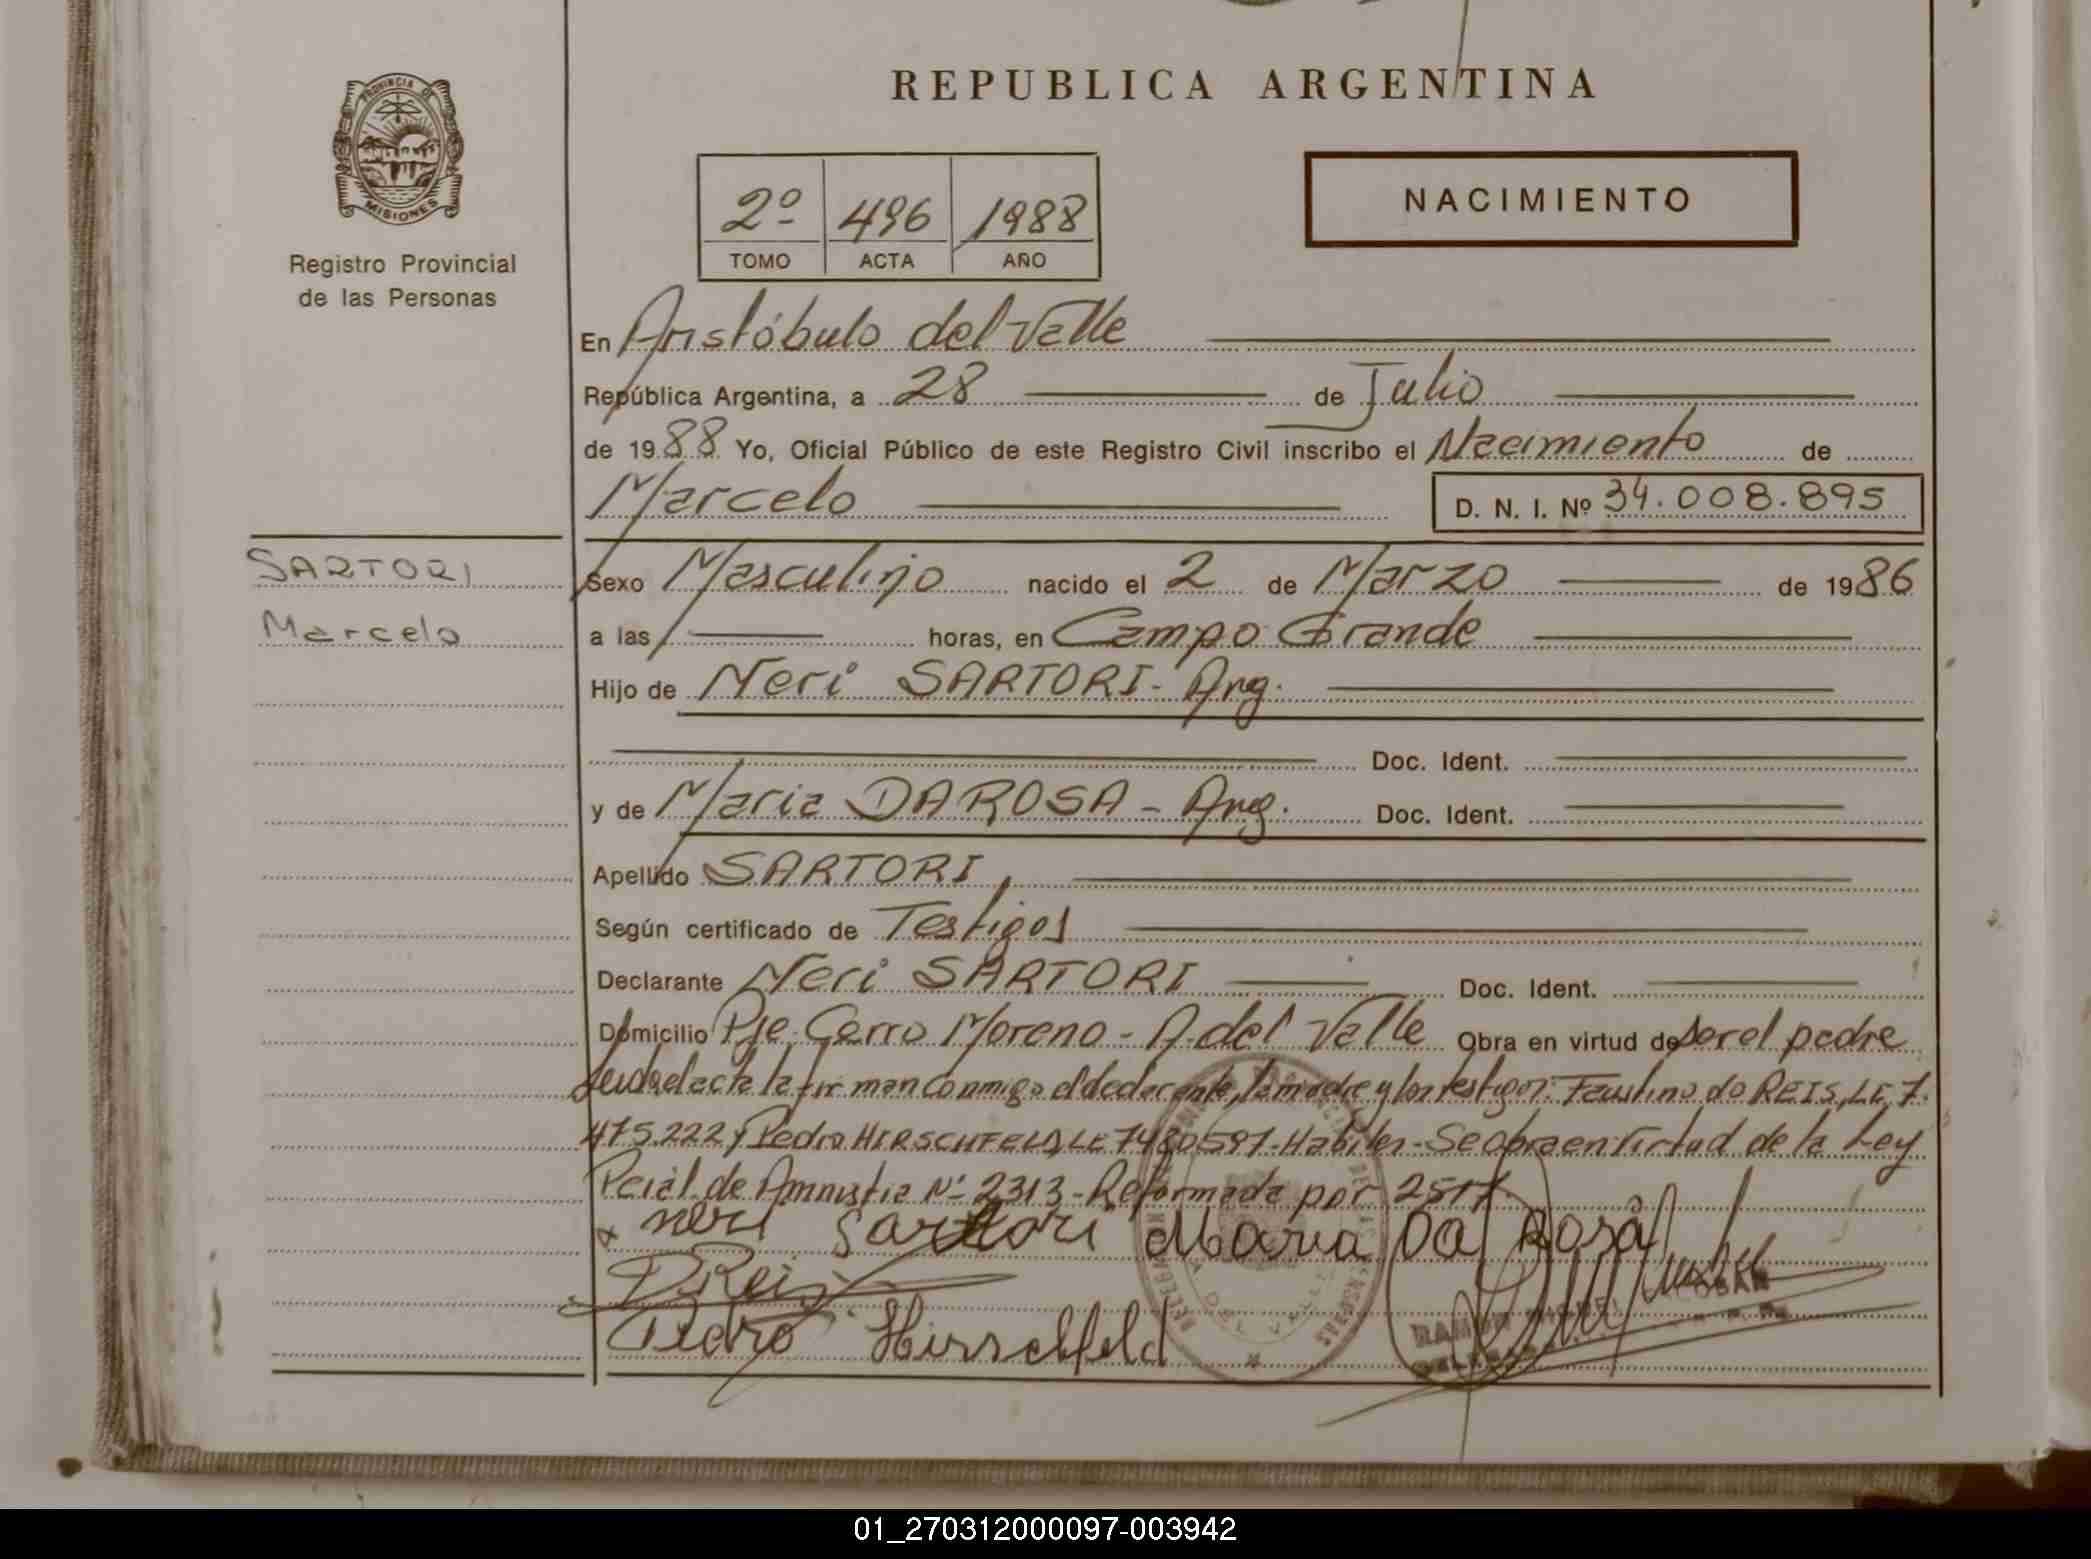 REPUBLICA ARGENTINA
PROVINCIA DE
MISIONES
Registro Provincial
de las Personas
2º 496 1988
TOMO ACTA AÑO
NACIMIENTO
En Aristóbulo del Valle
República Argentina, a 28 de Julio
de 1988 Yo, Oficial Público de este Registro Civil inscribo el Nacimiento de
Marcelo D. N. I. Nº 34.008.895
SARTORI
Marcelo
Sexo Masculino nacido el 2 de Marzo de 1986
a las horas, en Campo Grande
Hijo de Neri SARTORI - Arg.
Doc. Ident.
y de Maria DA ROSA - Arg. Doc. Ident.
Apellido SARTORI
Según certificado de Testigos
Declarante Neri SARTORI Doc. Ident.
Domicilio Pje. Cerro Moreno - A. del Valle Obra en virtud de ser el padre
Leida el acta la firman conmigo el declarante, la madre y los testigos: Faustino do REIS, LE 7.
475.222 y Pedro HIRSCHFELD LE 7480597 - Habiles - Se obra en virtud de la Ley
Pcial. de Amnistia Nº 2313 - Reformada por 2517.
neri Sartori Maria Da Rosa
DReis
Pedro Hirschfeld
01_270312000097-003942